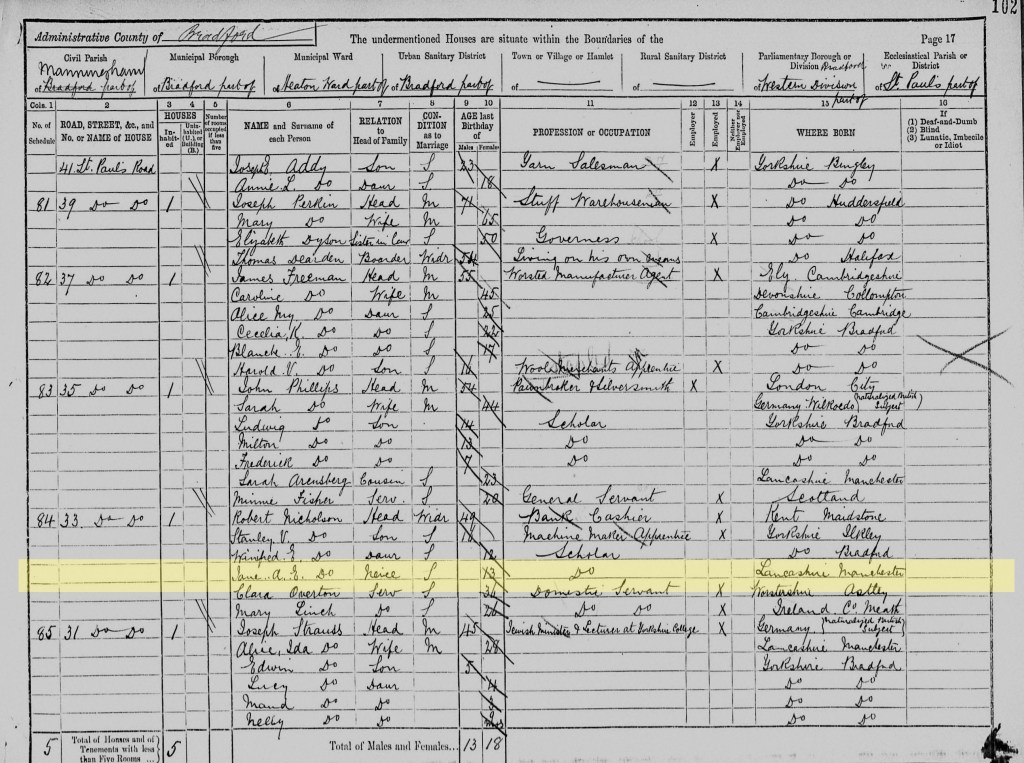 102
Administrative County of Bradford The undermentioned Houses are situate within the Boundaries of the Page 17
Civil Parish Municipal Borough Municipal Ward Urban Sanitary District Town or Village or Hamlet Rural Sanitary District Parliamentary Borough or Division Bradford Ecclesiastical Parish or District
Manningham
of Bradford part of of Bradford part of of Heaton Ward part of of Bradford part of of of of Western Division part of of St. Paul's part of
Coln. 1 2 3 4 5 6 7 8 9 10 11 12 13 14 15 16
No. of Schedule ROAD, STREET, &c., and No. or NAME of HOUSE HOUSES Inhabited Uninhabited (U.), or Building (B.) Number of rooms occupied if less than five NAME and Surname of each Person RELATION to Head of Family CONDITION as to Marriage AGE last Birthday of Males Females PROFESSION or OCCUPATION Employer Employed Neither Employer nor Employed WHERE BORN (1) Deaf-and-Dumb (2) Blind (3) Lunatic, Imbecile or Idiot
41 St. Paul's Road Joseph E. Addy Son S 23 Yarn Salesman X Yorkshire Bingley
Annie L. Do Daur S 18 Do Do
81 39 Do Do 1 Joseph Perkin Head M 71 Stuff Warehouseman X Do Huddersfield
Mary Do Wife M 65 Do Do
Elizabeth Dyson Sister in law S 50 Governess X Do Do
Thomas Dearden Boarder Widr 54 Living on his own means Do Halifax
82 37 Do Do 1 James Freeman Head M 55 Worsted Manufacturer Agent X Ely Cambridgeshire
Caroline Do Wife M 45 Devonshire Collompton
Alice My. Do Daur S 25 Cambridgeshire Cambridge
Cecelia K. Do Do S 22 Yorkshire Bradford
Blanche E. Do Do S 17 Do Do
Harold V. Do Son S 16 Wool Merchants Apprentice X Do Do
83 35 Do Do 1 John Phillips Head M 54 Pawnbroker & Silversmith X London City
Sarah Do Wife M 44 Germany (Naturalized British Subject)
Ludwig Do Son 14 Scholar Yorkshire Bradford
Milton Do Do 13 Do Do Do
Frederick Do Do 7 Do Do Do
Sarah Arensberg Cousin S 23 Lancashire Manchester
Minnie Fisher Serv. S 20 General Servant X Scotland
84 33 Do Do 1 Robert Nicholson Head Widr 49 Bank Cashier X Kent Maidstone
Stanley V. Do Son S 16 Machine Maker Apprentice X Yorkshire Ilkley
Winifred E. Do Daur S 12 Scholar Do Bradford
Jane A. E. Do Neice S 13 Do Lancashire Manchester
Clara Overton Serv S 36 Domestic Servant X Worstershire Astley
Mary Linch Do S 26 Do Do X Ireland Co. Meath
85 31 Do Do 1 Joseph Strauss Head M 45 Jewish Minister & Lecturer at Yorkshire College X Germany (Naturalized British Subject)
Alice, Ida Do Wife M 28 Lancashire Manchester
Edwin Do Son 5 Yorkshire Bradford
Lucy Do Daur 4 Do Do
Maud Do Do Do Do
Nelly Do Do Do Do
5 Total of Houses and of Tenements with less than Five Rooms ... 5 Total of Males and Females... 13 18